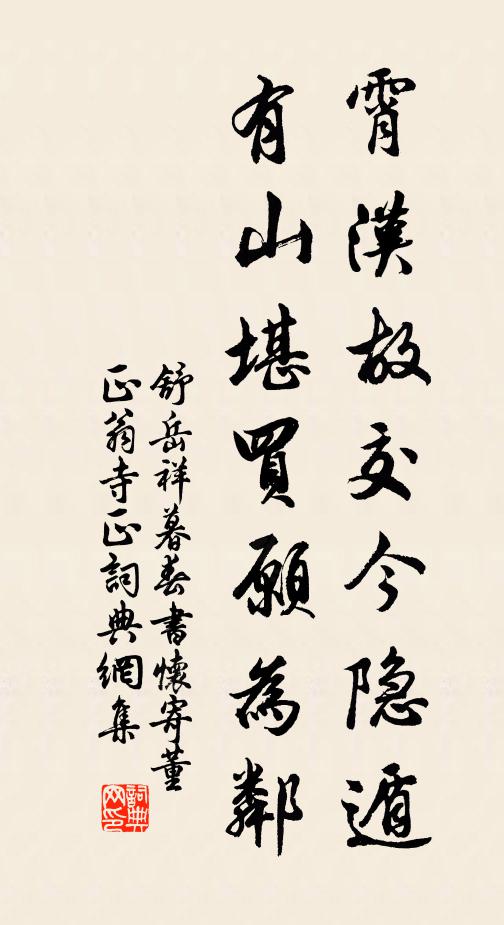 霄漢故交今隐遁
有山堪買願為鄰
舒岳祥暮春書懷寄董
正翁寺正詞典網集
詞典网印